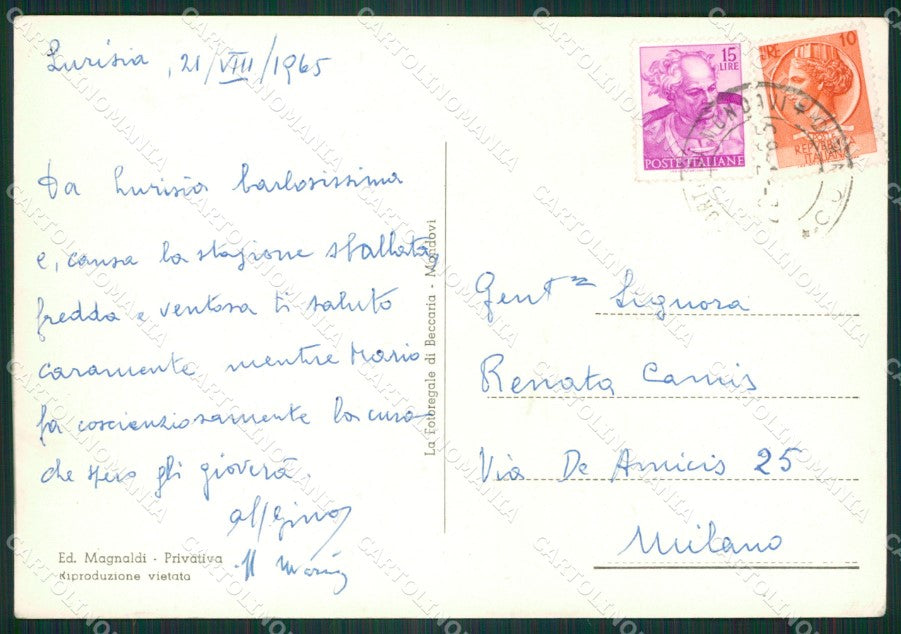 Lurisia, 21/VIII/1965
Da Lurisia barbosissima
e, causa la stagione sballata,
fredda e ventosa ti saluto
caramente mentre Mario
fa coscienziosamente la cura
che spero gli gioverà.
Ed. Magnaldi - Privativa
Riproduzione vietata
La Fotoregale di Beccaria - Mondovì
15
LIRE
POSTE ITALIANE
LIRE 10
REPUBBLICA
ITALIANA
MONDOVI
Gent.ma Signora
Renata Camis
Via De Amicis 25
Milano
CARTOLINOMANIA